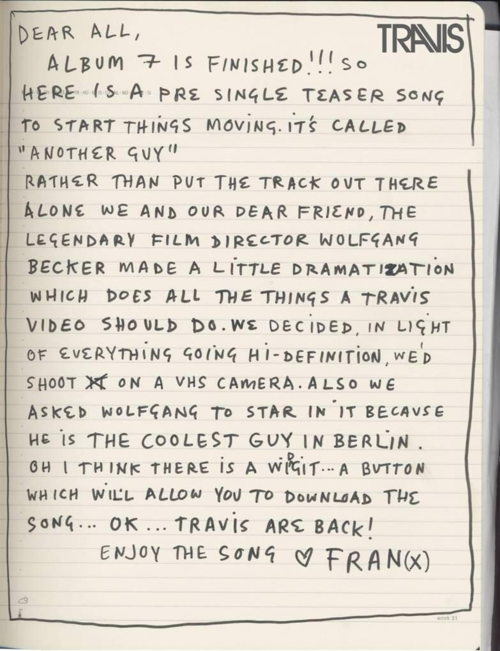 DEAR ALL,
TRAVIS
ALBUM 7 IS FINISHED!!! SO
HERE IS A PRE SINGLE TEASER SONG
TO START THINGS MOVING. IT'S CALLED
"ANOTHER GUY"
RATHER THAN PUT THE TRACK OUT THERE
ALONE WE AND OUR DEAR FRIEND, THE
LEGENDARY FILM DIRECTOR WOLFGANG
BECKER MADE A LITTLE DRAMATIZATION
WHICH DOES ALL THE THINGS A TRAVIS
VIDEO SHOULD DO. WE DECIDED, IN LIGHT
OF EVERYTHING GOING HI-DEFINITION, WE'D
SHOOT ON A VHS CAMERA. ALSO WE
ASKED WOLFGANG TO STAR IN IT BECAUSE
HE IS THE COOLEST GUY IN BERLIN.
OH I THINK THERE IS A WIDGIT... A BUTTON
WHICH WILL ALLOW YOU TO DOWNLOAD THE
SONG... OK... TRAVIS ARE BACK!
ENJOY THE SONG ♡ FRAN(X)